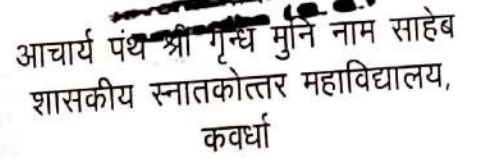 आचार्य पंथ श्री गृन्ध मुनि नाम साहेब
शासकीय स्नातकोत्तर महाविद्यालय,
कवर्धा